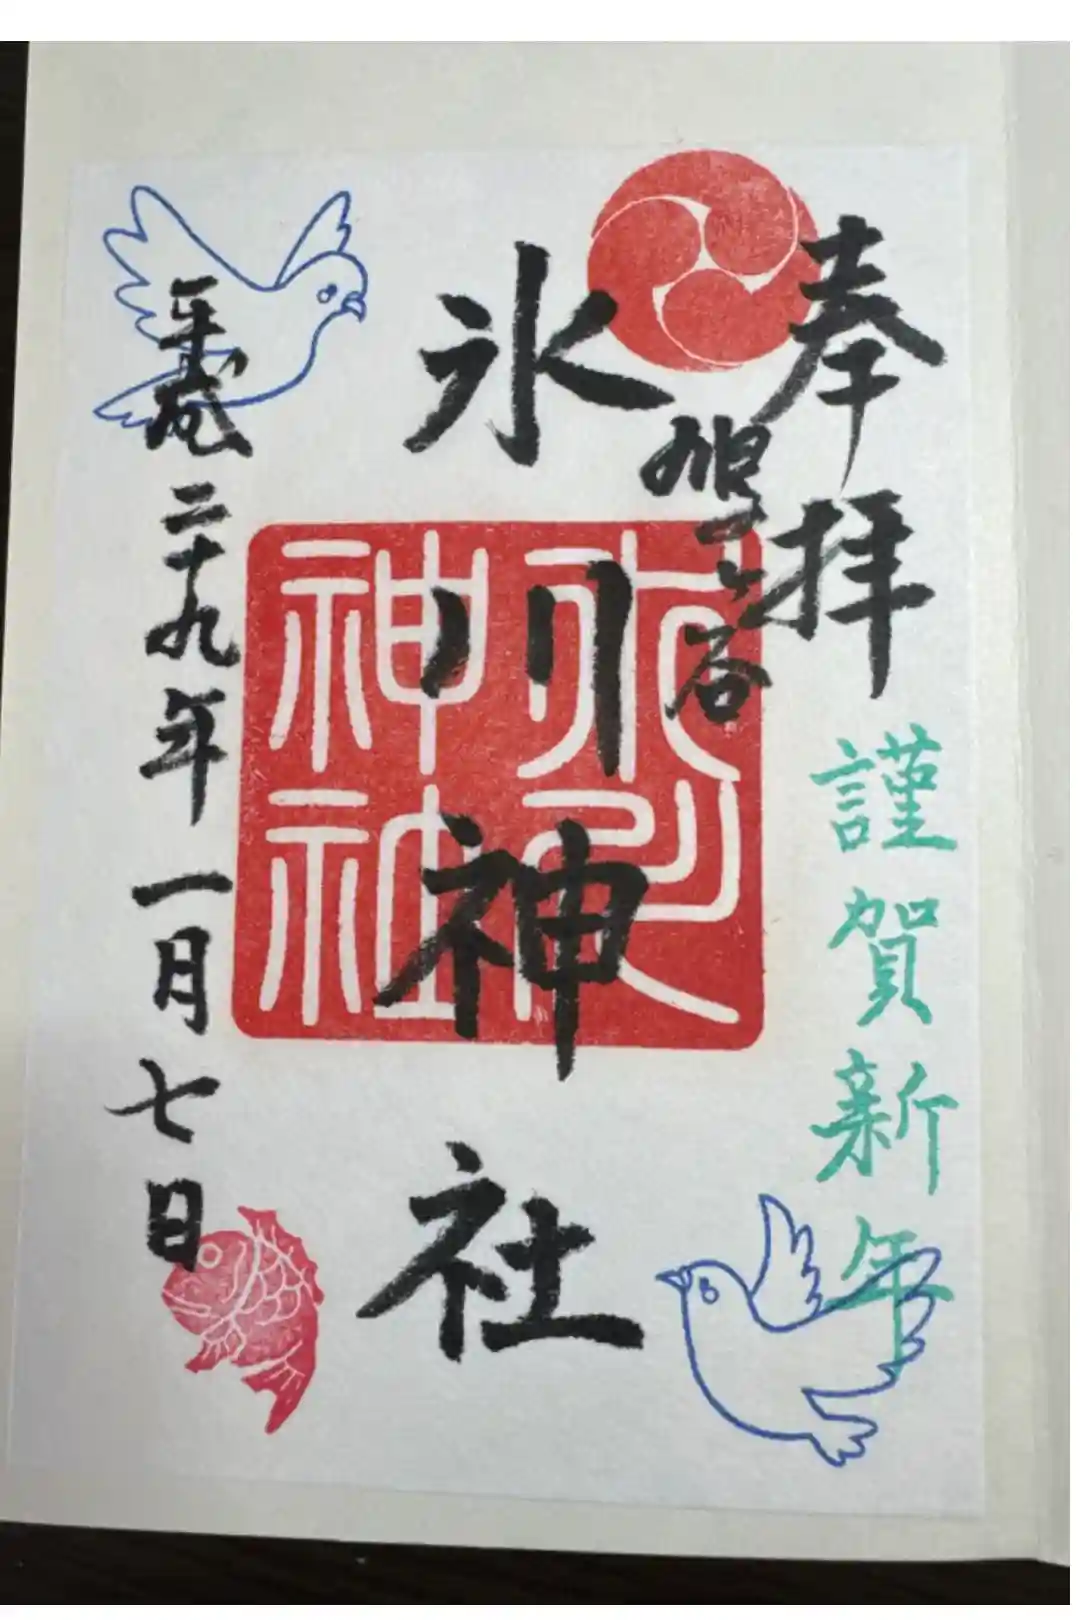 奉拝
謹賀新年
旭ヶ谷
氷川神社
氷川神社
平成二十九年一月七日